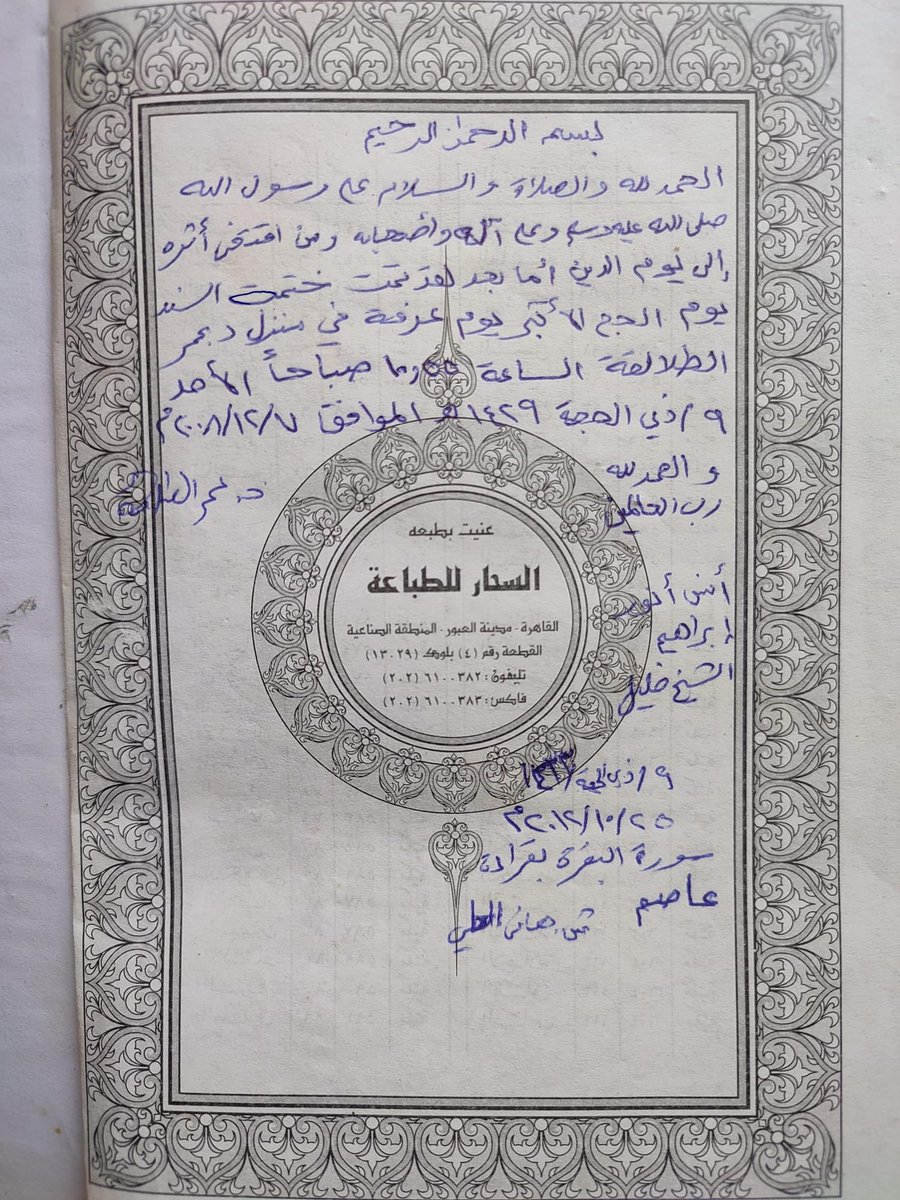 بسم الله الرحمن الرحيم
الحمد لله والصلاة والسلام على رسول الله
صلى الله عليه وسلم وعلى آله وأصحابه ومن اقتفى أثره
إلى يوم الدين أما بعد لقد تمت ختمت السند
يوم الحج الأكبر يوم عرفة في منزل د. عمر
الطلالقة الساعة صباحاً الأحد
٩/ذي الحجة ١٤٢٩هـ الموافق ٢٠٠٨/١٢/٧م
و الحمد لله
رب العالمين
د. عمر
عنيت بطبعه
السحار للطباعة
القاهرة - مدينة العبور - المنطقة الصناعية
القطعة رقم (٤) بلوك (١٣٠٢٩)
تليفون : ٦١٠٠٣٨٢ (٢٠٢)
فاكس : ٦١٠٠٣٨٣ (٢٠٢)
أنس أنور
إبراهيم
الشيخ خليل
٩/ذي الحجة/١٤٣٣
٢٠١٢/١٠/٢٥م
سورة البقرة بقراءة
عاصم